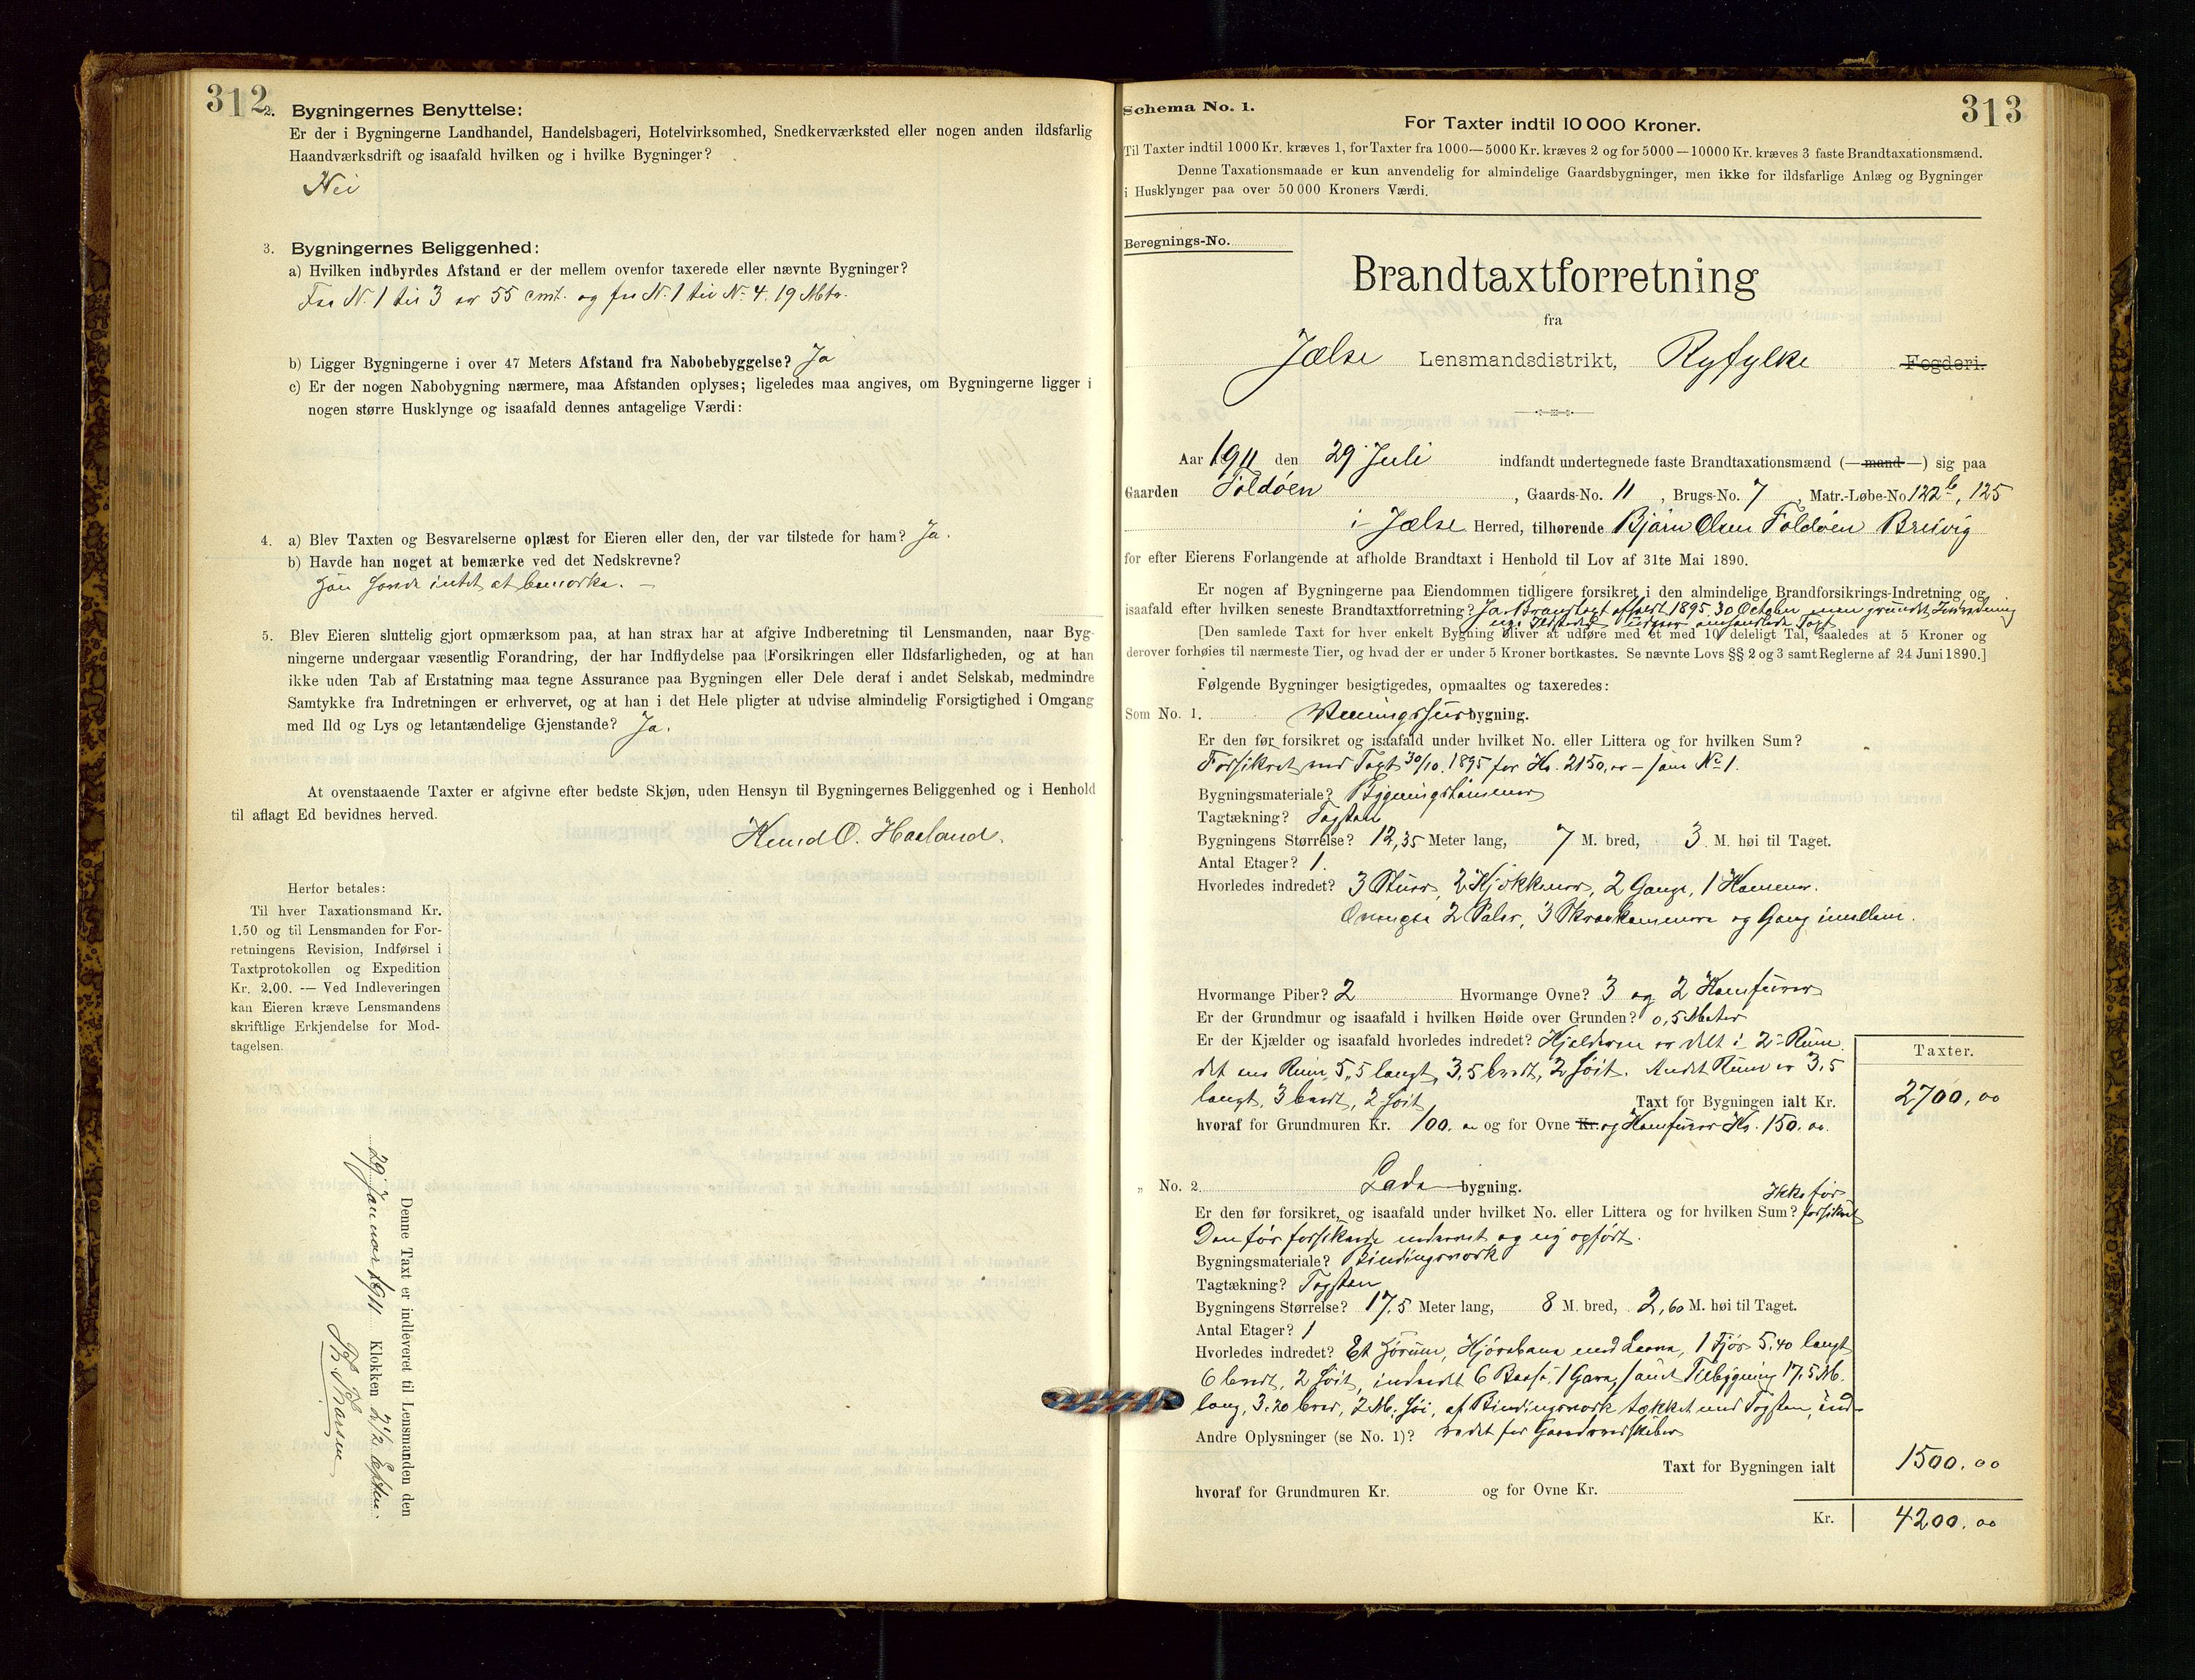 312
2. Bygningernes Benyttelse:
Er der i Bygningerne Landhandel, Handelsbageri, Hotelvirksomhed, Snedkerværksted eller nogen anden ildsfarlig
Haandværksdrift og isaafald hvilken og i hvilke Bygninger?
Nei
3. Bygningernes Beliggenhed:
a) Hvilken indbyrdes Afstand er der mellem ovenfor taxerede eller nævnte Bygninger?
Fra N. 1 til 3 er 55 cmt. og fra N. 1 til N. 4. 19 Mtr.
b) Ligger Bygningerne i over 47 Meters Afstand fra Nabobebyggelse? Ja
c) Er der nogen Nabobygning nærmere, maa Afstanden oplyses; ligeledes maa angives, om Bygningerne ligger i
nogen større Husklynge og isaafald dennes antagelige Værdi:
4. a) Blev Taxten og Besvarelserne oplæst for Eieren eller den, der var tilstede for ham? Ja.
b) Havde han noget at bemærke ved det Nedskrevne?
intet at bemærke. —
5. Blev Eieren sluttelig gjort opmærksom paa, at han strax har at afgive Indberetning til Lensmanden, naar Byg-
ningerne undergaar væsentlig Forandring, der har Indflydelse paa Forsikringen eller Ildsfarligheden, og at han
ikke uden Tab af Erstatning maa tegne Assurance paa Bygningen eller Dele deraf i andet Selskab, medmindre
Samtykke fra Indretningen er erhvervet, og at han i det Hele pligter at udvise almindelig Forsigtighed i Omgang
med Ild og Lys og letantændelige Gjenstande? Ja.
At ovenstaaende Taxter er afgivne efter bedste Skjøn, uden Hensyn til Bygningernes Beliggenhed og i Henhold
til aflagt Ed bevidnes herved.
Knud O. Haaland.
Herfor betales:
Til hver Taxationsmand Kr.
1.50 og til Lensmanden for For-
retningens Revision, Indførsel i
Taxtprotokollen og Expedition
Kr. 2.00. — Ved Indleveringen
kan Eieren kræve Lensmandens
skriftlige Erkjendelse for Mod-
tagelsen.
Denne Taxt er indleveret til Lensmanden den
29 Januar 1911 Klokken 2 1/2 Efterm.
313
Schema No. 1.
For Taxter indtil 10 000 Kroner.
Til Taxter indtil 1000 Kr. kræves 1, for Taxter fra 1000—5000 Kr. kræves 2 og for 5000—10000 Kr. kræves 3 faste Brandtaxationsmænd.
Denne Taxationsmaade er kun anvendelig for almindelige Gaardsbygninger, men ikke for ildsfarlige Anlæg og Bygninger
i Husklynger paa over 50 000 Kroners Værdi.
Beregnings-No.
Brandtaxtforretning
fra
Jælse Lensmandsdistrikt, Ryfylke Fogderi.
Aar 1911 den 29 Juli indfandt undertegnede faste Brandtaxationsmænd (—mand—) sig paa
Gaarden Foldøen, Gaards-No. 11, Brugs-No. 7, Matr.-Løbe-No 122 b, 125
i Jælse Herred, tilhørende Bjørn Olsen Foldøen Breivig
for efter Eierens Forlangende at afholde Brandtaxt i Henhold til Lov af 31te Mai 1890.
Er nogen af Bygningerne paa Eiendommen tidligere forsikret i den almindelige Brandforsikrings-Indretning og
isaafald efter hvilken seneste Brandtaxtforretning? Ja Brandtaxt 1895 30 October men grundet Indredning
[Den samlede Taxt for hver enkelt Bygning bliver at udføre med et med 10 deleligt Tal, saaledes at 5 Kroner og
derover forhøies til nærmeste Tier, og hvad der er under 5 Kroner bortkastes. Se nævnte Lovs §§ 2 og 3 samt Reglerne af 24 Juni 1890.]
Følgende Bygninger besigtigedes, opmaaltes og taxeredes:
Som No. 1. Vaaningshusbygning.
Er den før forsikret og isaafald under hvilket No. eller Littera og for hvilken Sum?
Forsikret ved Taxt 30/10. 1895 for Kr. 2150,oo — som No 1.
Bygningsmateriale? Bygningstømmer
Tagtækning? Tagsten
Bygningens Størrelse? 12,35 Meter lang, 7 M. bred, 3 M. høi til Taget.
Antal Etager? 1.
Hvorledes indredet? 3 Stuer, 2 Kjøkkener, 2 Gange, 1 Kammer.
2 Saler, 3 Skraakammere og Gang imellem.
Hvormange Piber? 2 Hvormange Ovne? 3 og 2 Komfurer
Er der Grundmur og isaafald i hvilken Høide over Grunden? 0,5 Meter
Er der Kjælder og isaafald hvorledes indredet? Kjælderen er delt i 2 Rum.
det ene Rum 5,5 langt, 3,5 bredt, 2 høit. Andet Rum er 3,5
langt, 3 bredt, 2 høit
Taxt for Bygningen ialt Kr.
Taxter.
2700,oo
hvoraf for Grundmuren Kr. 100. oo og for Ovne Kr. og Komfurer Kr. 150. oo.
„ No. 2. Lade bygning.
Er den før forsikret, og isaafald under hvilket No. eller Littera og for hvilken Sum? Ikke før forsikret
Den før forsikrede nedrevet og ny opført.
Bygningsmateriale? Bindingsverk
Tagtækning? Tagsten
Bygningens Størrelse? 17,5 Meter lang, 8 M. bred, 2,60 M. høi til Taget.
Antal Etager? 1
Hvorledes indredet? Et Hørum, Kjørebane med Laave, 1 Fjøs 5.40 langt
6 bredt, 2 høit, indredt 6 Baase, samt Tilbygning 17,5 M.
lang, 3.20 bred, 2 M. høi, af Bindingsverk tækket med Tagsten, ind-
Andre Oplysninger (se No. 1)? redet for Gaardsredskaber
Taxt for Bygningen ialt 1500.oo
hvoraf for Grundmuren Kr. og for Ovne Kr.
Kr. 4200.oo